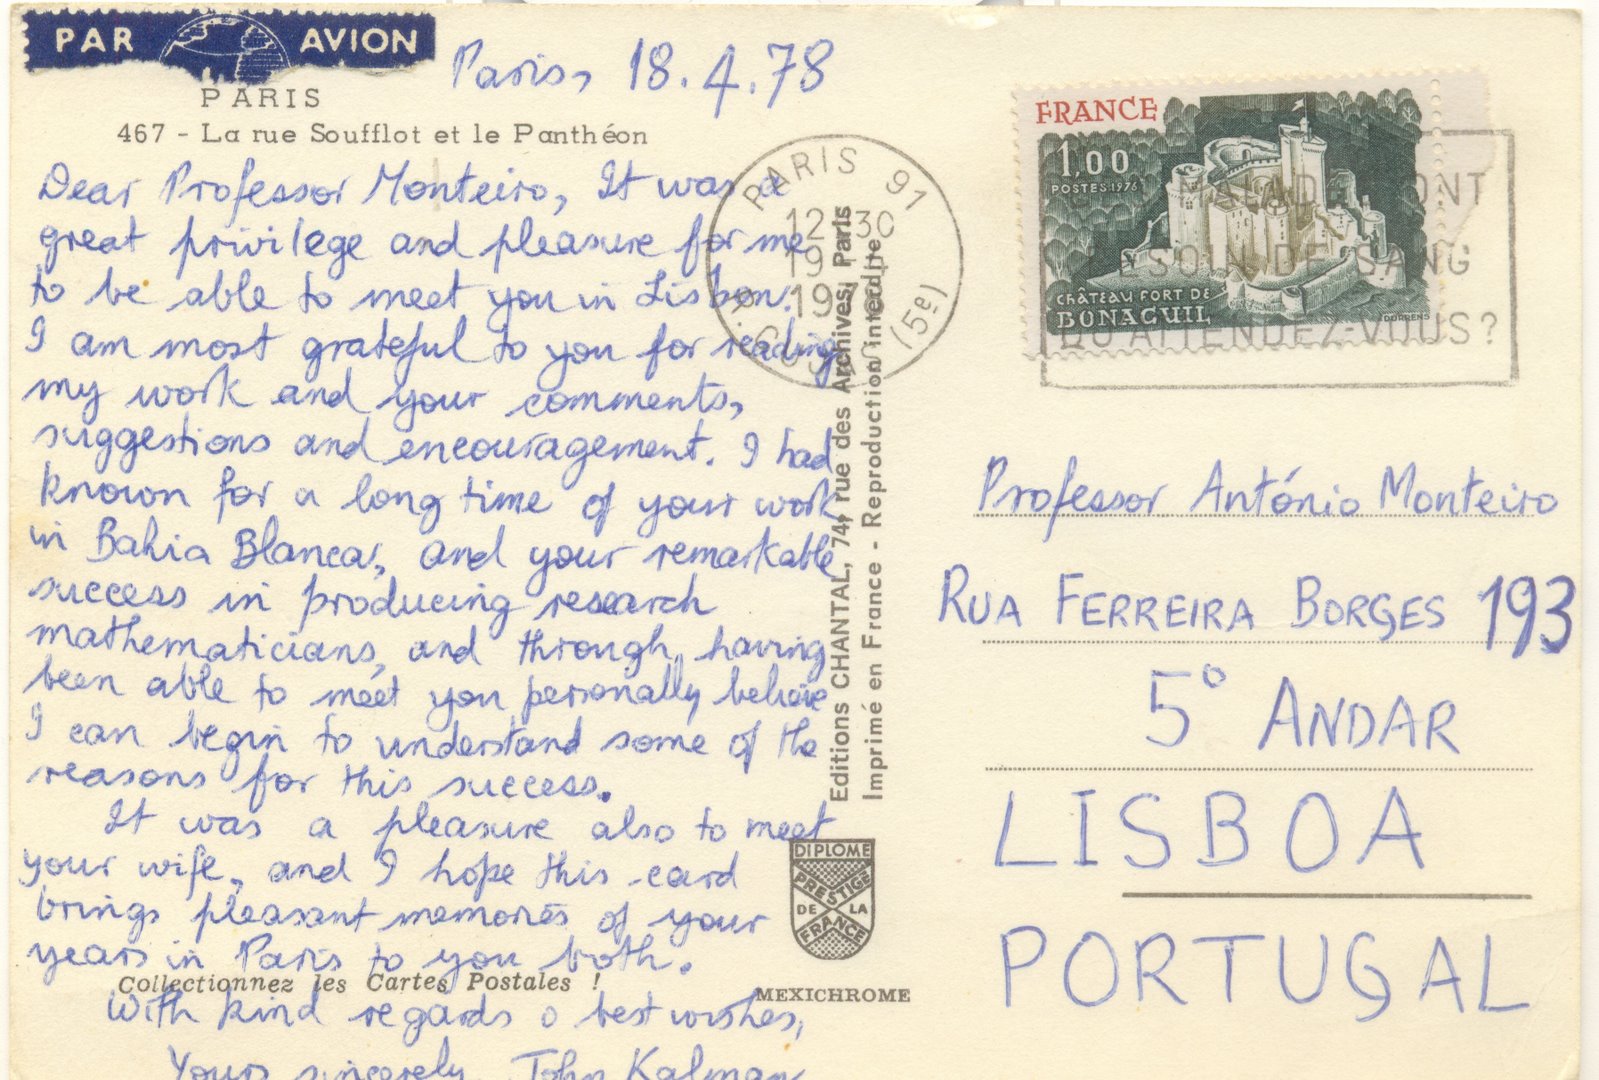 PAR AVION
Paris, 18.4.78
PARIS
467 - La rue Soufflot et le Panthéon
Dear Professor Monteiro, It was a
great privilege and pleasure for me
to be able to meet you in Lisbon.
I am most grateful to you for reading
my work and your comments,
suggestions and encouragement. I had
known for a long time of your work
in Bahia Blanca, and your remarkable
success in producing research
mathematicians, and through having
been able to meet you personally believe
I can begin to understand some of the
reasons for this success.
It was a pleasure also to meet
your wife, and I hope this card
brings pleasant memories of your
years in Paris to you both.
Collectionnez les Cartes Postales !
With kind regards & best wishes,
Yours sincerely, John Kalman
Editions CHANTAL, 74, rue des Archives, Paris
Imprimé en France - Reproduction interdite
DIPLOME
PRESTIGE
DE LA
FRANCE
MEXICHROME
PARIS 91
12 H 30
19
1978
(5e)
FRANCE
1,00
POSTES 1976
CHÂTEAU FORT DE
BONAGUIL
DURRENS
MALADES ONT
BESOIN DE SANG
QU'ATTENDEZ-VOUS?
Professor António Monteiro
RUA FERREIRA BORGES 193
5º ANDAR
LISBOA
PORTUGAL